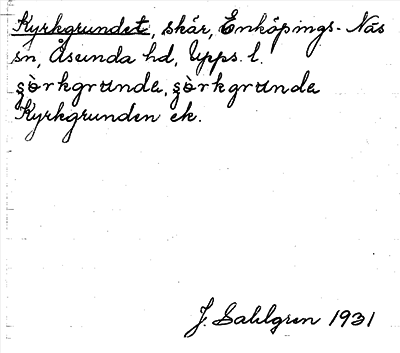 Kyrkgrundet, skär, Enköpings-Näs
sn, Åsunda hd, Upps. l.
çè̀rkgrunda, çè̀rkgrunda
Kyrkgrunden ek.
J. Sahlgren 1931